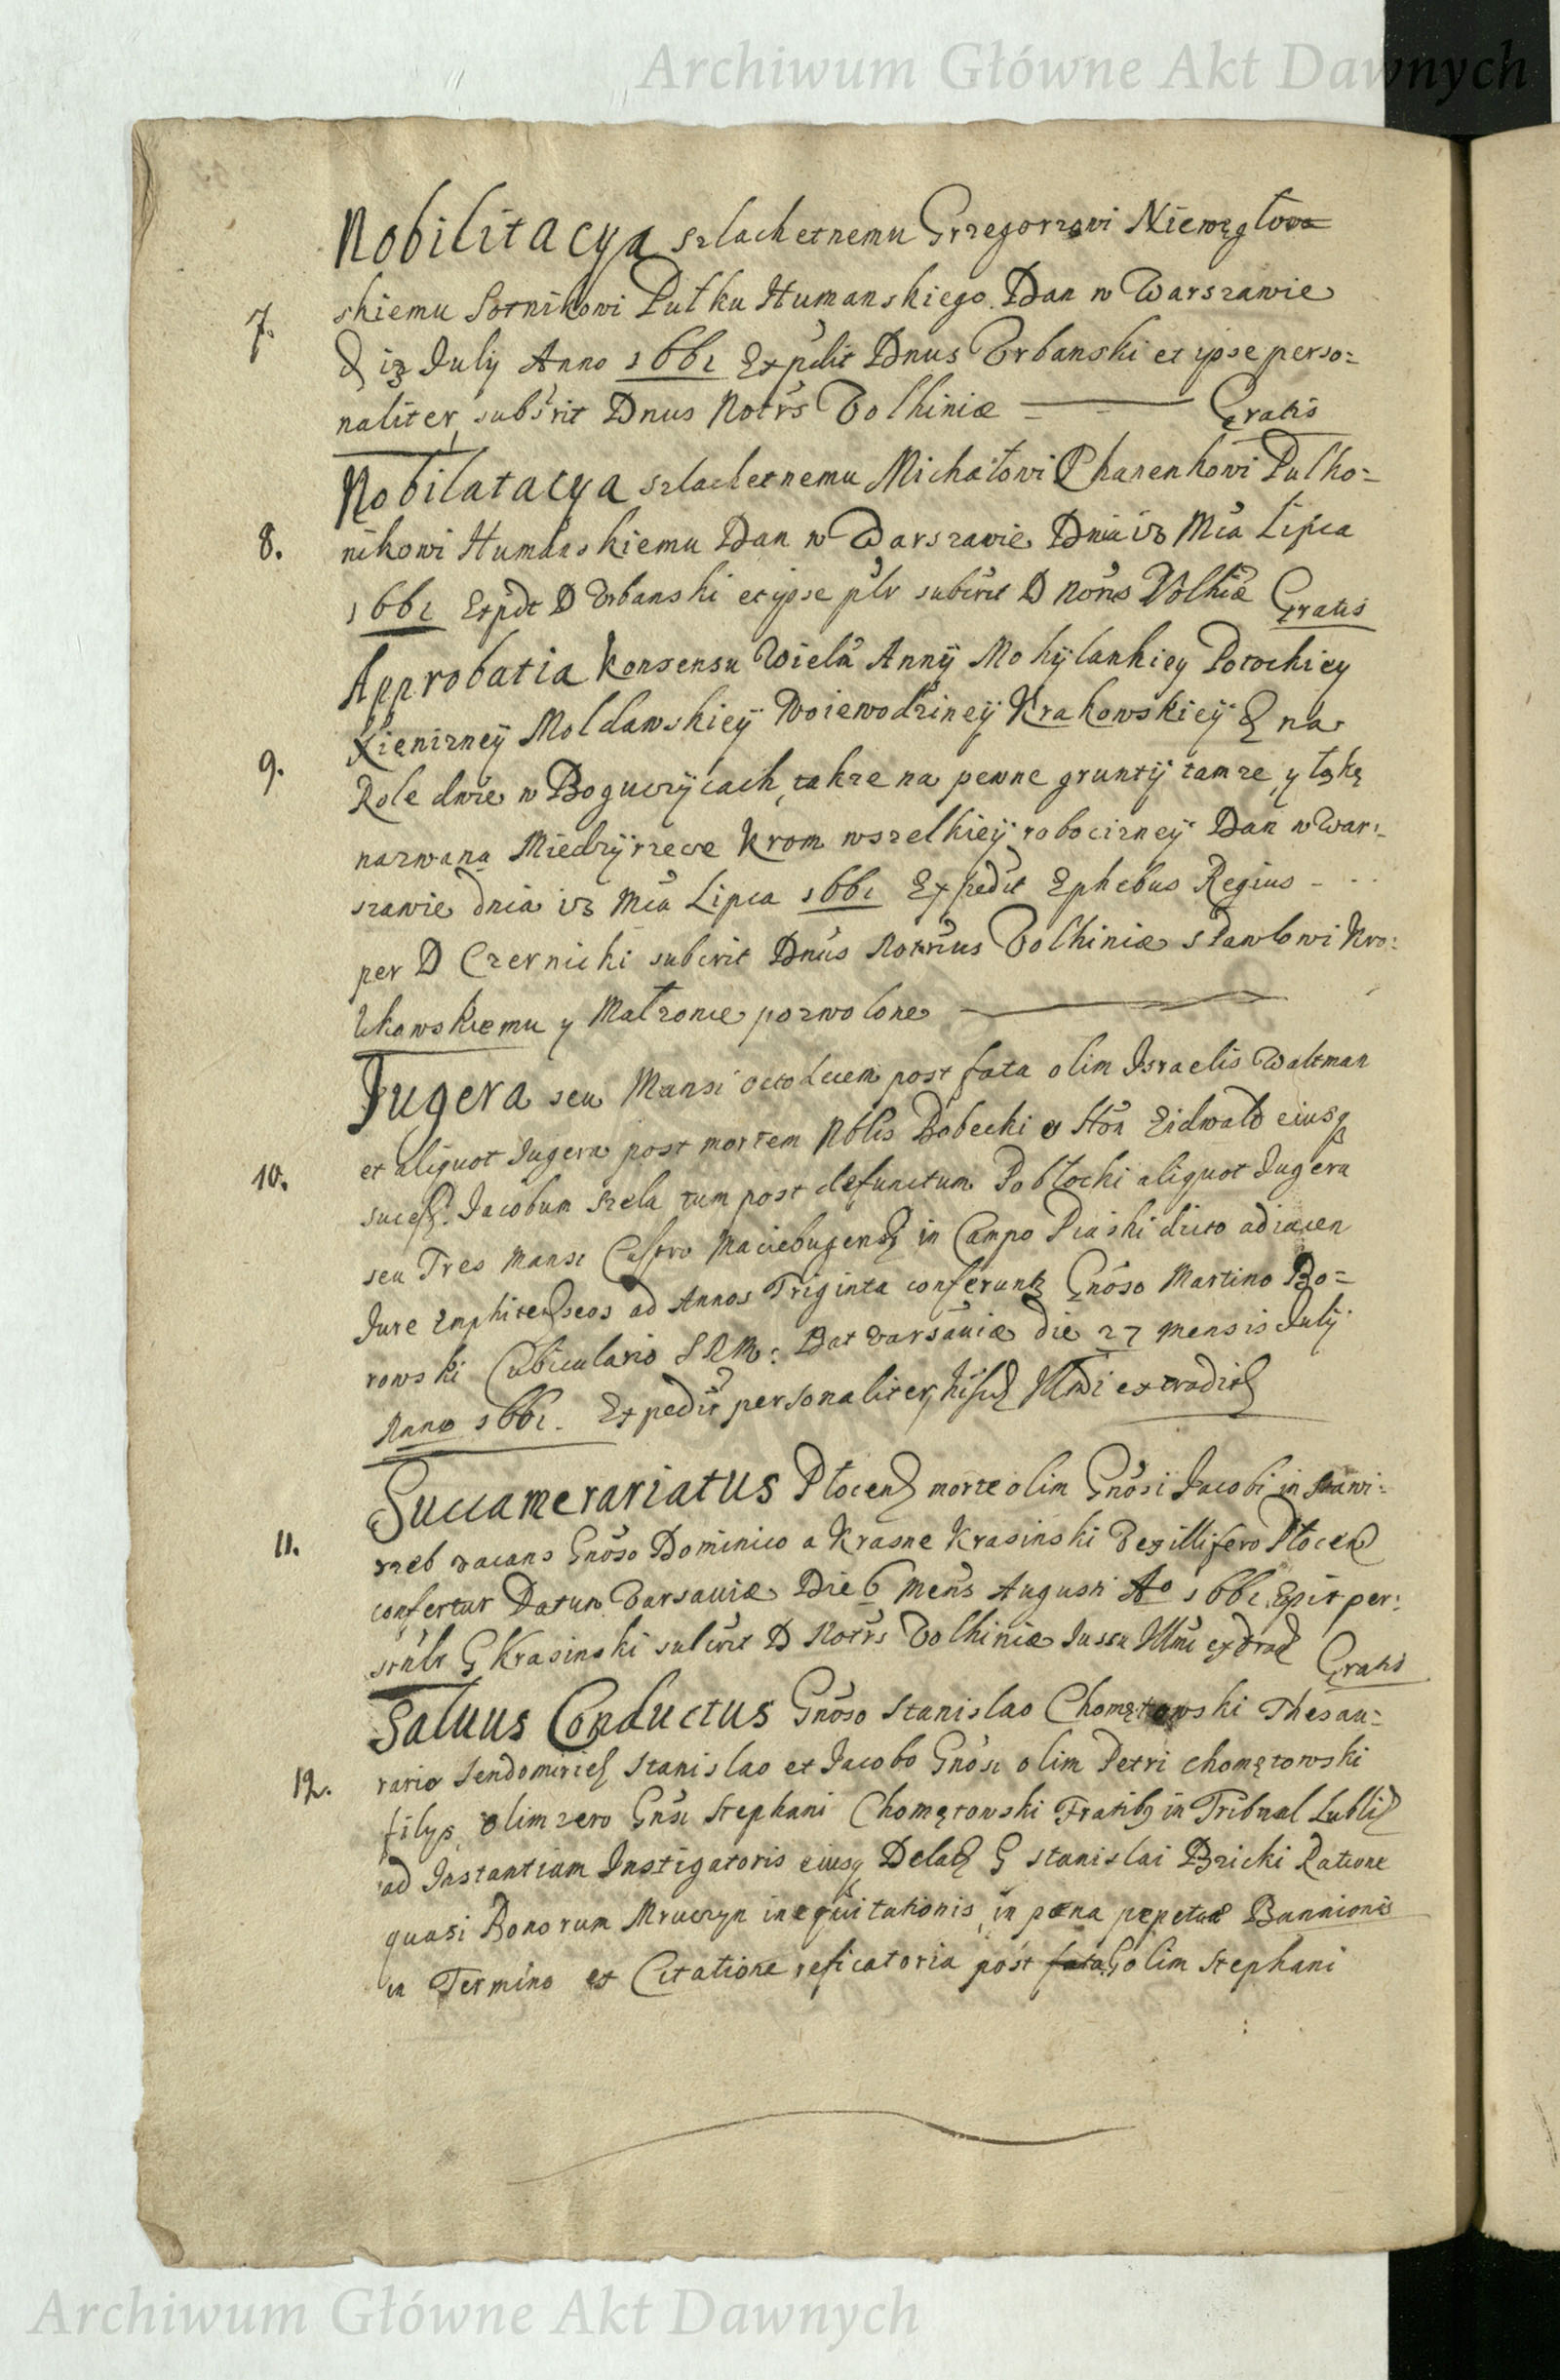 Archiwum Główne Akt Dawnych
Nobilitacya szlachetnemu Grzegorzowi Niewęgłow
7. skiemu Sotnikowi Pułku Humanskiego Dan w Warszawie
July Anno 1661 Expdit Dnus Vrbanski et ipse perso=
naliter, subsrit Dnus Notrs Volhiniæ Gratis
Nobilatacya szlachetnemu Michałowi Chanenkowi Pulko=
8. nikowi Humanskiemu Dan w Warszawie Dnia 13 Mca Lipca
1661 Expdt D Vrbanski et ipse plr subcrit D Noris Volhiæ Gratis
Approbatia Konsensu Wielm Annÿ Mohÿlankiey Potockiey
Xienizneÿ Moldawskieÿ Woiewodzineÿ Krakowskieÿ na
9. Role dwie w Boguczÿcach, takze na pewne gruntÿ tamze, y łąkę
nazwaną Miedzÿrzecze krom wszelkieÿ robocizneÿ Dan w War:
szawie dnia 13 Mca Lipca 1661 Expedit Ephebus Regius - - -
per D Czernicki subcrit Dnus Notrius Volhiniæ Pawłowi Kro:
likowskiemu y Małzonce pozwolone
Jugera seu Mansi octodecem post fata olim Israelis Waltman
et aliquot Jugera post mortem Nblis Bobecki Eidwald eiusq
10. sucess. Jacobum Szela tum post defunctum Pobłocki aliquot Jugera
seu Tres Mansi Castro in Campo Piaski dicto adiacen
Jure Emphiteuseos ad Annos Triginta conferunt Gnoso Martino Bo=
rowski Cubiculario SRM: Dat Varsaviæ die 27 mensis Julÿ
Anno 1661. Expedit personaliter, Illmi extradit
Succamerariatus Płocen morte olim Gnosi Jacobi in
11. vacans Gnoso Dominico a Krasne Krasinski Vexillifero Płocen
confertur Datum Varsaviæ Die 6 Mens Augusti Ao 1661 Epit per:
sonlr G Krasinski subcrit D Notrs Volhiniæ Jussu Illmi extrad Gratis
Saluus Conductus Gnoso Stanislao Chomętowski Thesau=
12. rario Sendomirien Stanislao et Jacobo Gnosi olim Petri Chomętowski
filys, olim vero Gnsi Stephani Chomętowski Fratibq in Tribnal Lublin
ad Instantiam Instigatoris eiusq Delat G Stanislai Bzicki Ratione
quasi Bonorum Mruczyn inequitationis, in pæna ppetuæ Bannionis
in Termino et Citatione reficatoria post fata G olim Stephani
Archiwum Główne Akt Dawnych